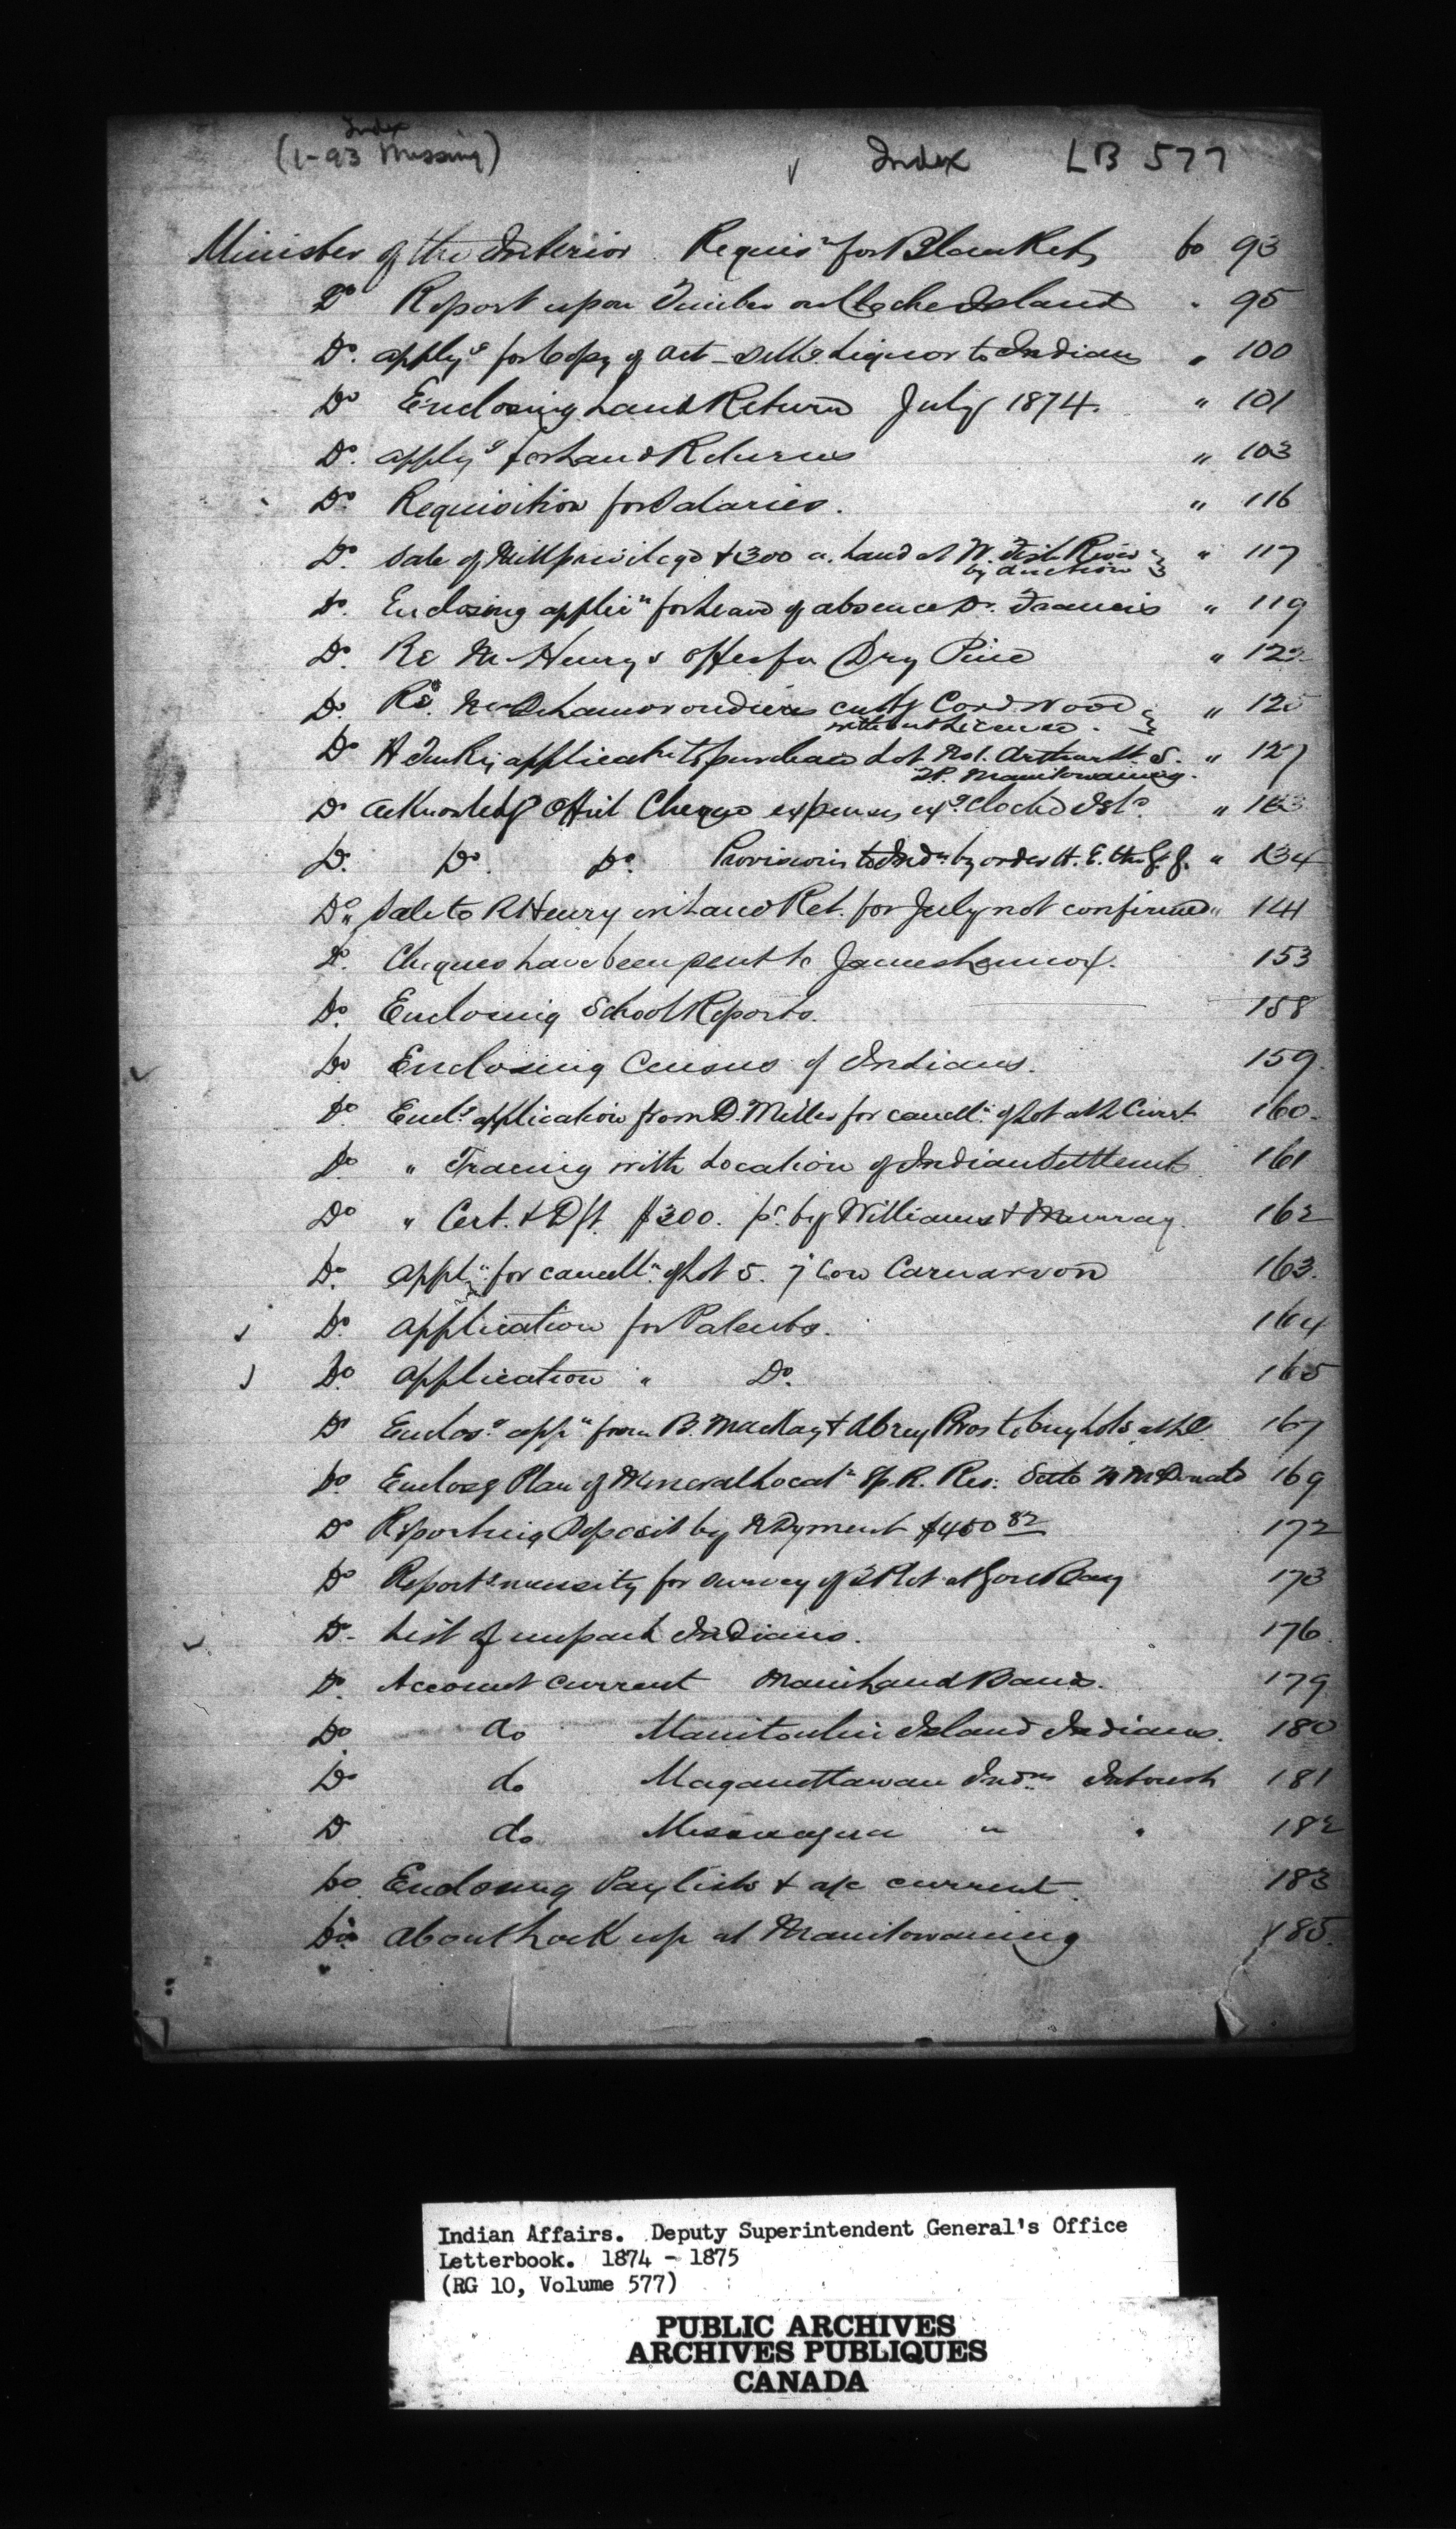 Index
(1-93 Missing)
Index LB 577
Minister of the Interior Requisn for Blankets fo 93
Do Report upon Timber on Cloche Island " 95
Do. applyg for Copy of Act - Sellg Liquor to Indians " 100
Do Enclosing Land Return July 1874. " 101
Do. applyg for Land Returns " 103
Do. Requisition for Salaries. " 116
Do. Sale of Mill privilege & 300 a. land at W. Fish River " 117
by auction
Do. Enclosing applicn for leave of absence Dr. Francis " 119
Do. Re McHenry's offer for Dry Pine " 122
Do. Re. cuttg Cord wood " 125
without License.
Do applicatn to purchase Lot No 1. Arthur St. S. " 127
TP. Manitowaning.
Do Acknowledg Offil Cheque expenses Cloche Isld. " 133
Do. Do. Do. Provisions to Inds by order H. E. the G. G. " 134
Do. Sale to R Henry in Land Ret. for July not confirmed " 141
Do. Cheques have been sent to James Lennox. 153
Do. Enclosing School Reports. 158
Do. Enclosing Census of Indians. 159.
Do Encl.g application from D. Miller for cancelln of Lot at L Currt. 160.
Do " Tracing with Location of Indian Settlemts 161
Do " Cert. & Dft. $300. pd by Williams & Murray. 162
Do. Appln for cancelln of Lot 5. 7 Con Carnarvon 163.
Do. Application for Patents. 164
Do. Application " Do. 165
Do Enclosg appn from B. Mackay & Abrey Bros to buy lots at LC. 167
Do Enclosg Plan of Mineral Locatn Sp. R. Res. 169
Do Reporting Deposit by N Dyment $450 82 172
Do Reportg necessity for survey of TPlot at Gore Bay 173
Do. List of unpaid Indians. 176.
Do. Account current Mainland Bands. 179
Do do Manitoulin Island Indians. 180
Do do Maganettawan Inds. Interest 181
Do do Missisagua " " 182
Do Enclosing Paylists & a/c current. 183
Do. About Lock up at Manitowaning 185.
Indian Affairs. Deputy Superintendent General's Office
Letterbook. 1874 - 1875
(RG 10, Volume 577)
PUBLIC ARCHIVES
ARCHIVES PUBLIQUES
CANADA